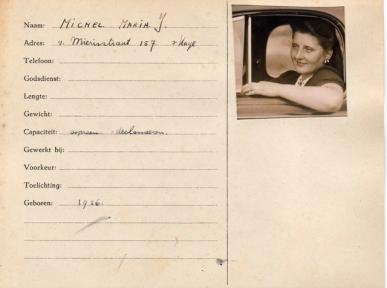 Naam: MICHEL MARIA J.
Adres: v. Mierisstraat 157 Haye
Telefoon:
Godsdienst:
Lengte:
Gewicht:
Capaciteit: sopraan declameren.
Gewerkt bij:
Voorkeur:
Toelichting:
Geboren: 1926.